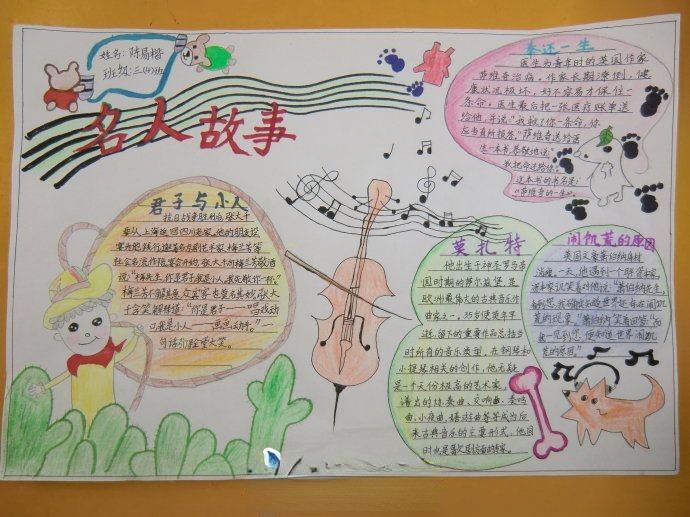 姓名：陈易楷
班级：三(4)班
名人故事
奉还一生
医生为青年时的英国作家
萨维奇治病。作家长期潦倒，健
康状况极坏，好不容易才保住一
条命。医生最后把一张医疗账单送
给他，并说："我救了你一条命，你
应当有所报答。"萨维奇送给医
生一本书恭敬地说："
我把命还给你。"
这本书的书名是：
《萨维奇的一生》。
君子与小人
抗日战争胜利后，张大千
要从上海返回四川老家。他的朋友设
宴为他饯行，邀著名京剧艺术家梅兰芳等
社会名流作陪。宴会开始，张大千向梅兰芳敬酒
说："梅先生，你是君子，我是小人，我先敬你一杯。"
梅兰芳不解其意，众宾客也莫名其妙。张大
千含笑解释道："你是君子——唱戏动
口，我是小人——画画动手。"一
句话引得满堂大笑。
莫扎特
他出生于神圣罗马帝
国时期的萨尔兹堡，是
欧洲最伟大的古典音乐作
曲家之一。35岁便英年早
逝，留下的重要作品总括当
时所有的音乐类型，在钢琴和
小提琴相关的创作，他无疑
是一个天份极高的艺术家，
谱出的协奏曲、交响曲、奏鸣
曲、小夜曲、嬉游曲等等成为后
来古典音乐的主要形式，他同
时也是歌剧方面的专家。
闹饥荒的原因
英国文豪萧伯纳身材
消瘦。一天，他遇到一个胖资本家，
资本家讥笑着对他说："萧伯纳先生，
看到您，我确实知道世界还有在闹饥
荒的现象。"萧伯纳笑着回答："而
我一见到您，便知道世界闹饥
荒的原因。"